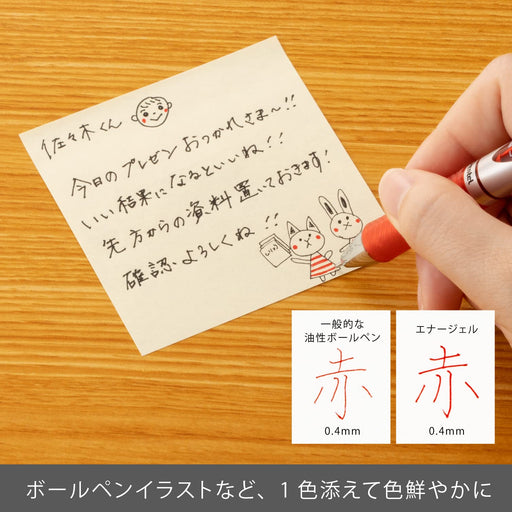 佐々木くん
今日のプレゼンおつかれさま〜!!
いい結果になるといいね!!
先方からの資料置いておきます!
確認よろしくね!!
一般的な
油性ボールペン
赤
0.4mm
エナージェル
赤
0.4mm
ボールペンイラストなど、1色添えて色鮮やかに